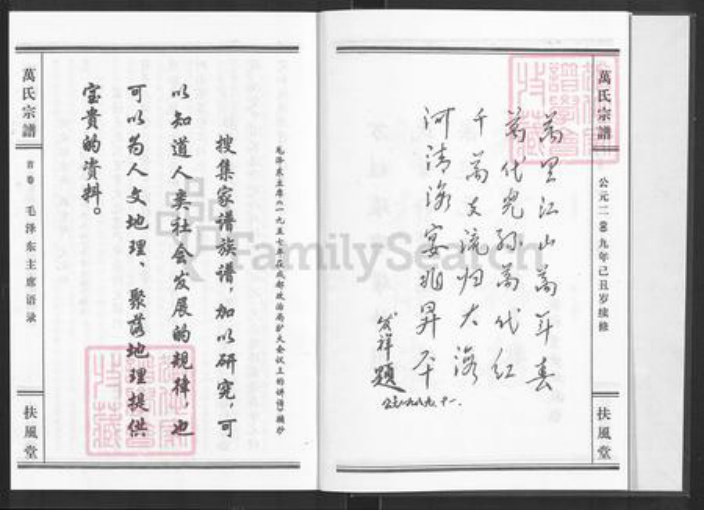 萬氏宗譜
公元二〇〇九年己丑岁续修
扶風堂
萬里江山萬年春
萬代儿孙萬代红
千萬支流归大海
河清海宴兆昇平
发祥題
公元一九八九.十一.
毛泽东主席《一九五七年在成都政治局扩大会议上的讲话》摘抄
搜集家谱族谱，加以研究，可
以知道人类社会发展的规律，也
可以为人文地理、聚落地理提供
宝贵的资料。
萬氏宗譜
首卷
毛泽东主席语录
扶風堂
FamilySearch